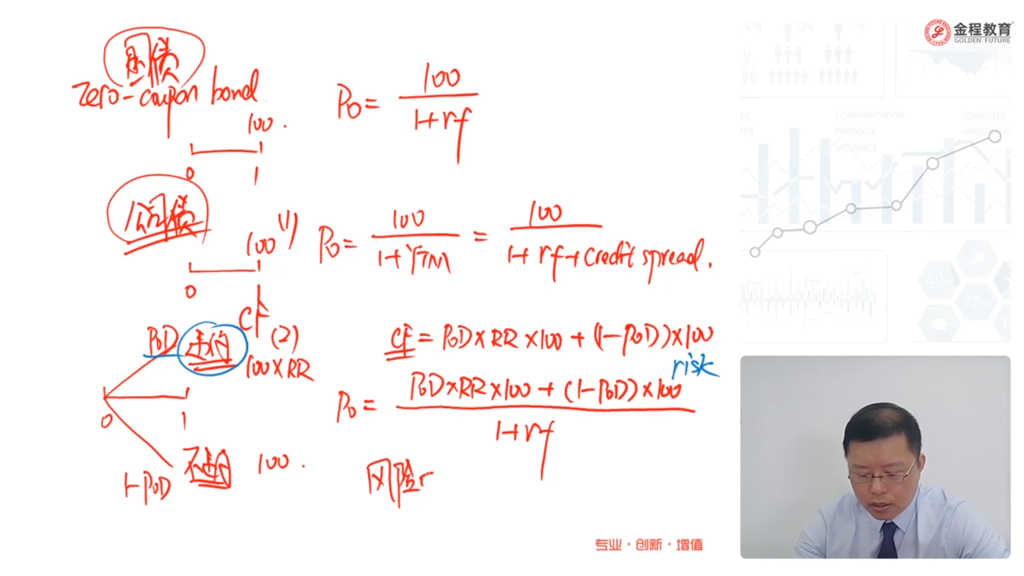 金程教育
GOLDEN FUTURE
国债
zero-coupon bond
100.
0 1
P0 = 100 / 1+rf
公司债
100 (1)
0
P0 = 100 / 1+YTM = 100 / 1+rf+credit spread.
CF
POD 违约 (2)
100×RR
0 1
1-POD 不违约 100.
CF = POD×RR×100+(1-POD)×100
risk
P0 = POD×RR×100+(1-POD)×100 / 1+rf
风险
专业·创新·增值
COMMUNICATION
PROTOCOL
INTERFACE